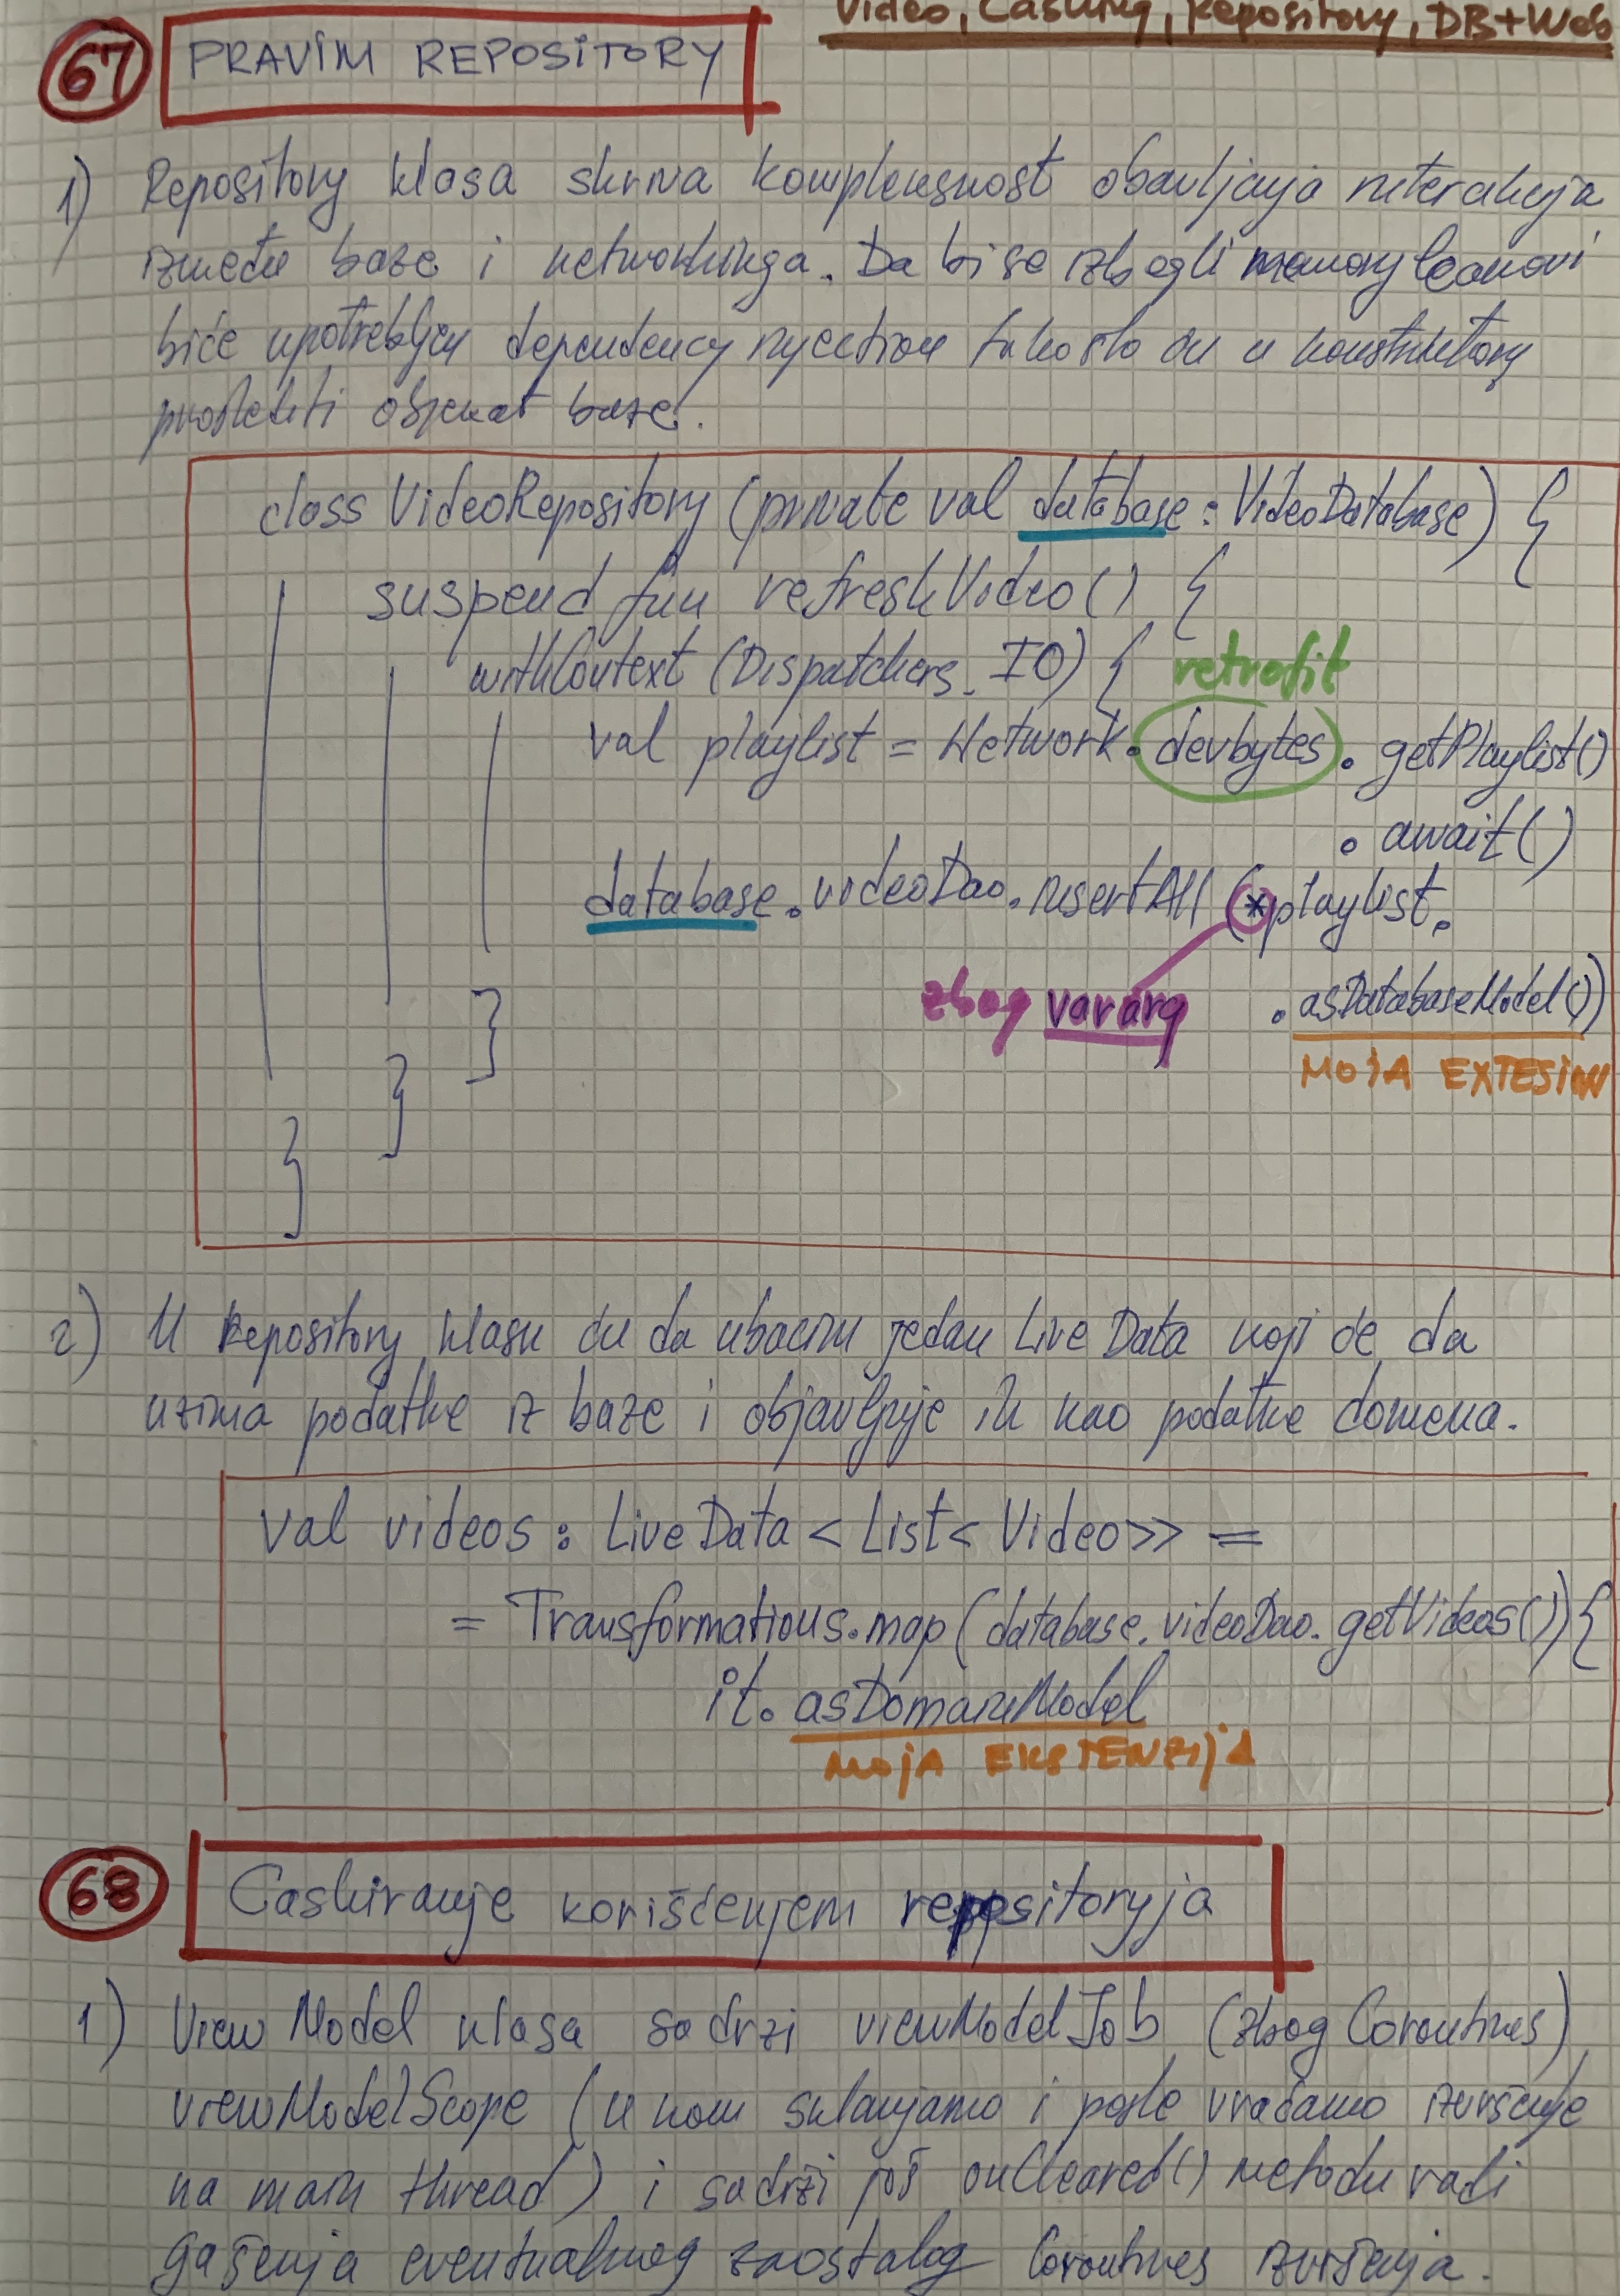 Video, Cashing, Repository, DB+Web
67 PRAVIM REPOSITORY
1) Repository klasa skriva kompleksnost obavljanja interakcija
između baze i networkinga. Da bi se izbegli memory leakovi
biće upotrebljen dependency injection tako što ću u konstruktoru
proslediti objekat baze.
class VideoRepository (private val database : VideoDatabase) {
suspend fun refreshVideo() {
withContext (Dispatchers. IO) {
retrofit
val playlist = Network. devbytes . getPlaylist()
. await()
database.videoDao.insertAll (*playlist.
zbog vararg .asDatabaseModel())
MOJA EXTESION
}
}
}
2) U Repository klasu ću da ubacim jedan Live Data koji će da
uzima podatke iz baze i objavljuje ih kao podatke domena.
val videos : LiveData < List< Video>> =
= Transformations.map (database.videoDao.getVideos()) {
it. asDomainModel
MOJA EKSTENZIJA
68 Cashiranje korišćenjem repositoryja
1) View Model klasa sadrži viewModelJob (zbog Coroutines)
viewModelScope (u kom sklanjamo i posle vraćamo izvršenje
na main thread) i sadrži još onCleared() metodu radi
gašenja eventualnog zaostalog Coroutines izvršenja.